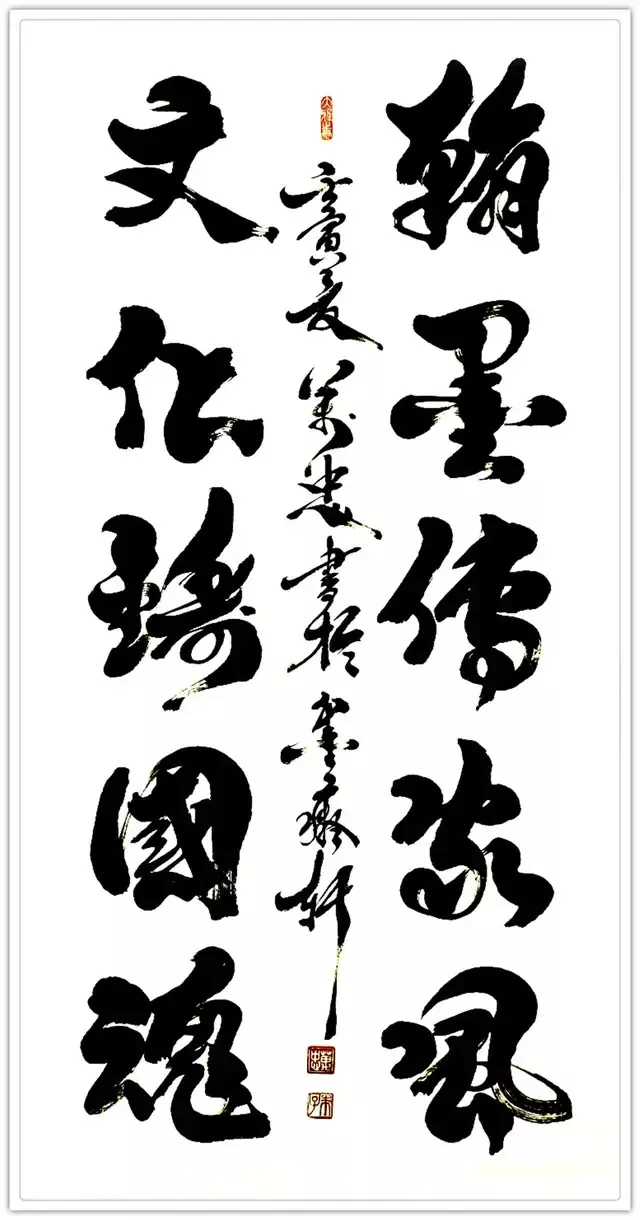 翰墨傳家風
文化鑄國魂
寅夏萬忠書於墨癡軒